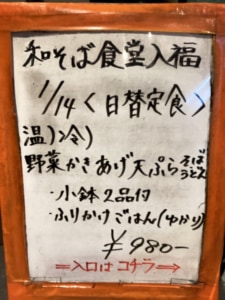 和そば食堂入福
1/14〈日替定食〉
温)冷)
野菜かきあげ天ぷらそばうどん
・小鉢2品付
・ふりかけごはん(ゆかり)
¥980-
⇒入口はコチラ⇒